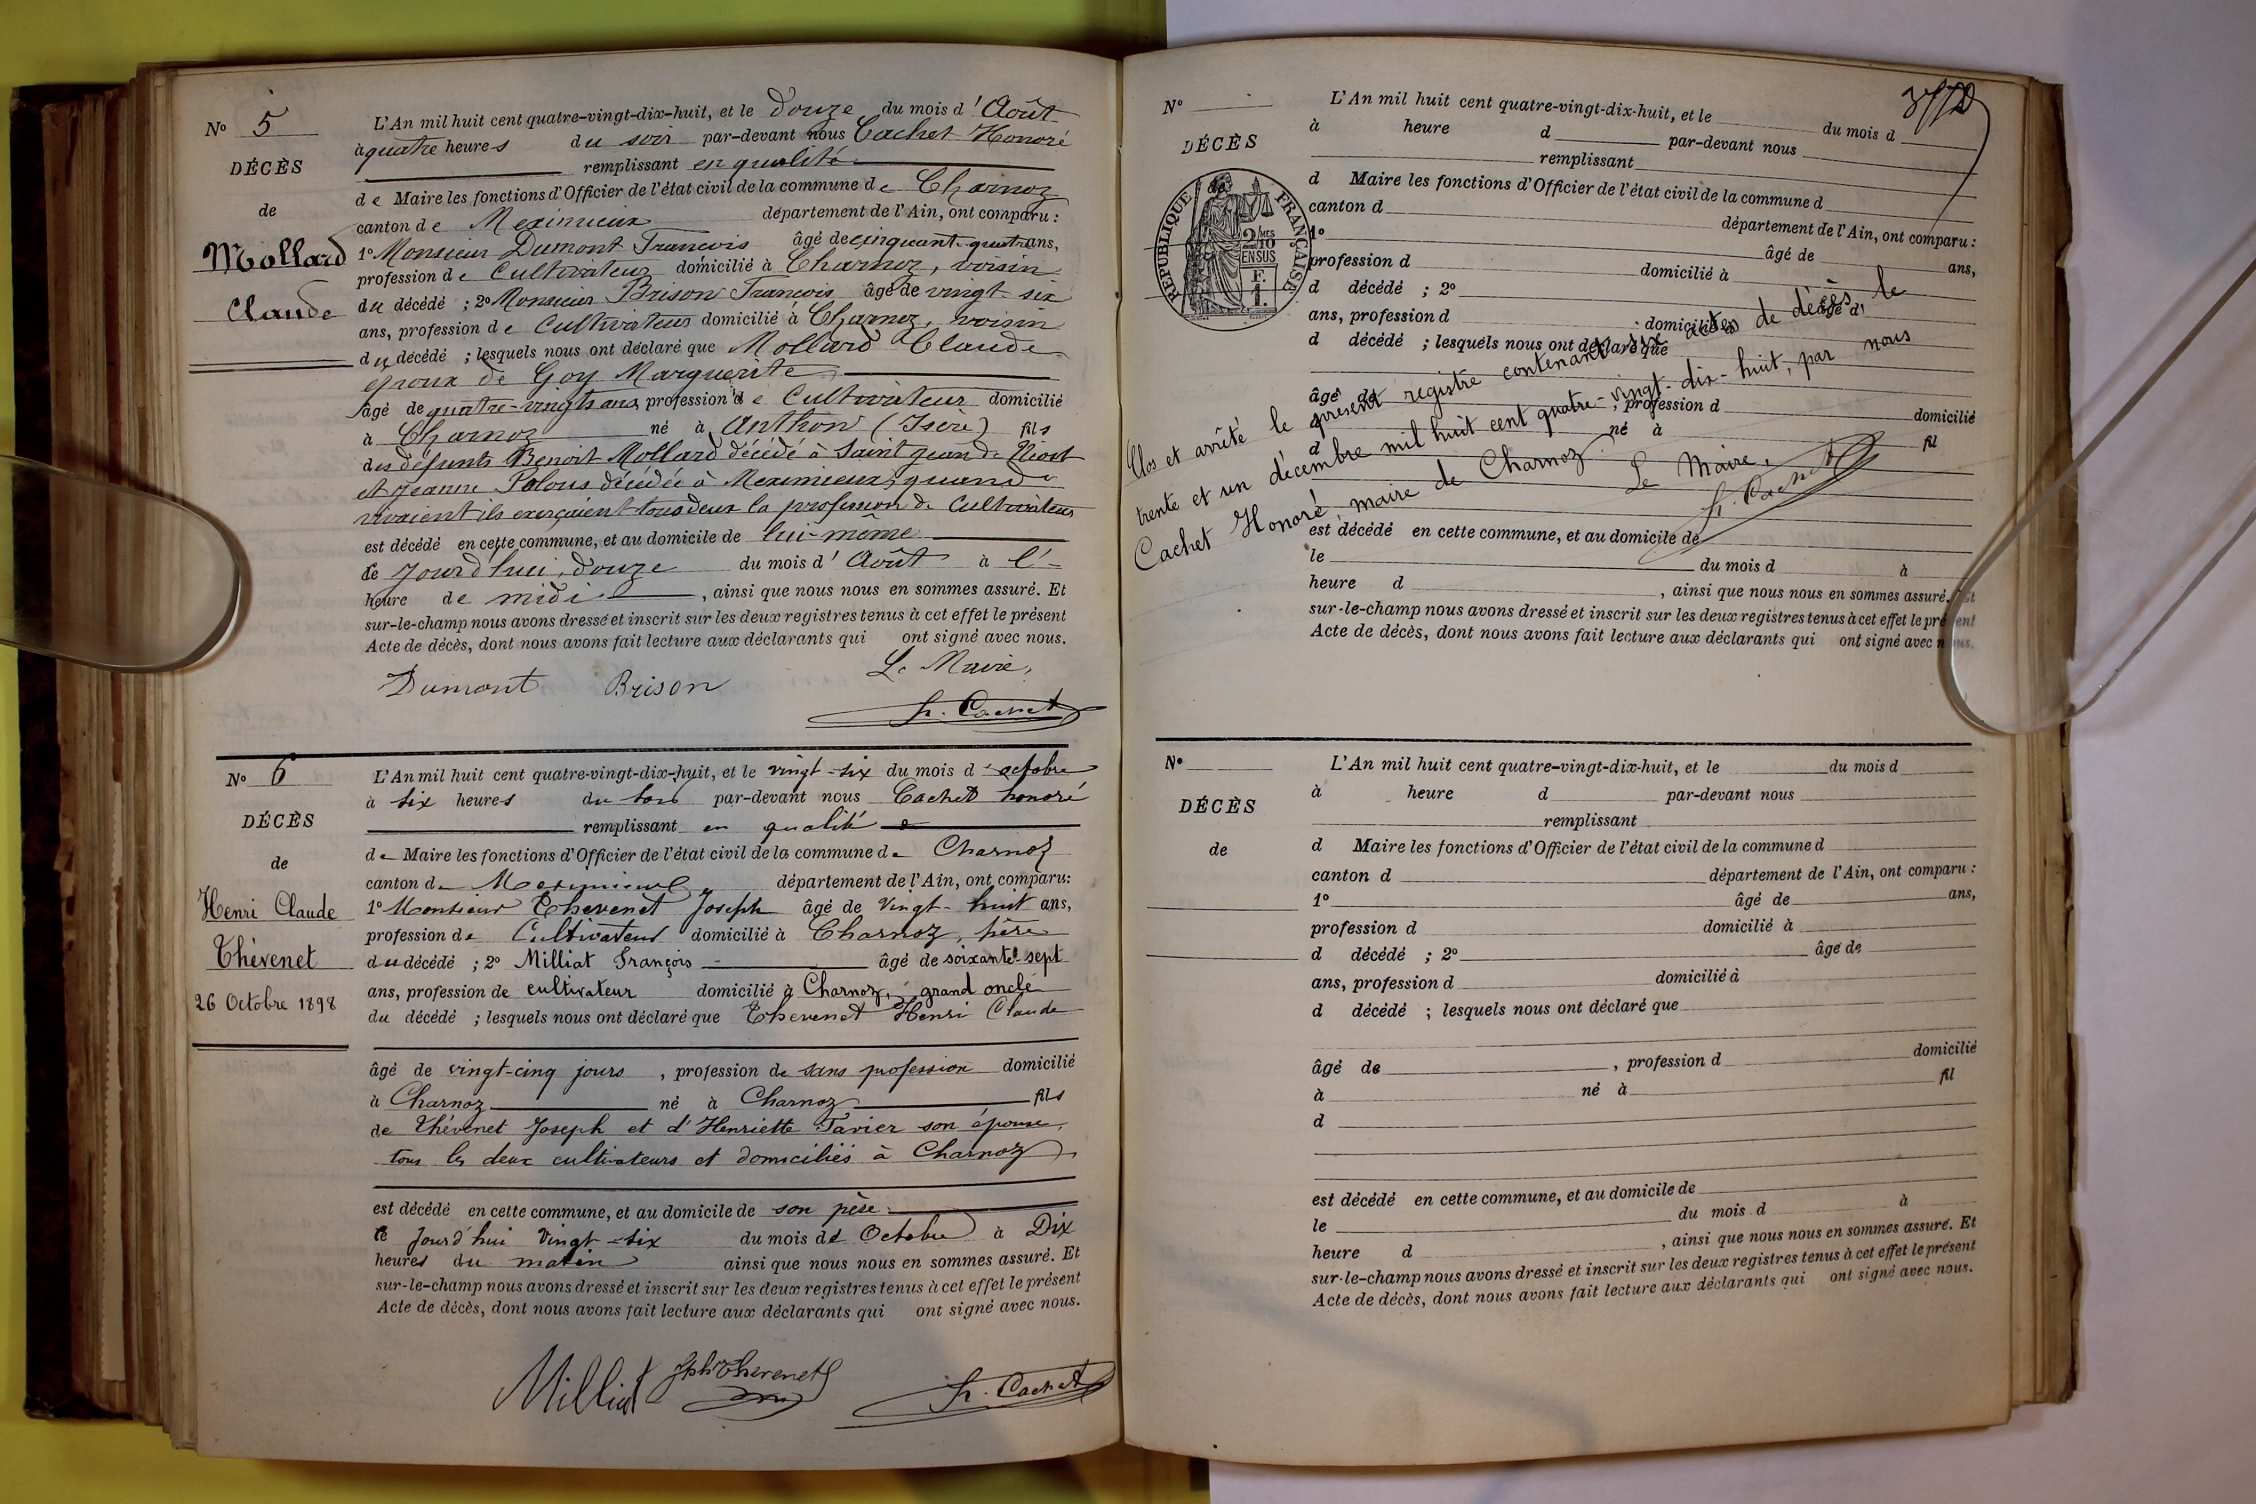 No 5
DÉCÈS
de
Mollard
Claude
L'An mil huit cent quatre-vingt-dix-huit, et le douze du mois d'Août
à quatre heures du soir par-devant nous Cachet Honoré
remplissant en qualité
de Maire les fonctions d'Officier de l'état civil de la commune de Charnoz
canton de Meximieux département de l'Ain, ont comparu :
1o Monsieur Dumont Francois âgé de cinquante-quatre ans,
profession de Cultivateur domicilié à Charnoz, voisin
du décédé ; 2o Monsieur Brison Francois âgé de vingt-six
ans, profession de Cultivateur domicilié à Charnoz, voisin
du décédé ; lesquels nous ont déclaré que Mollard Claude
époux de Goy Marguerite
âgé de quatre-vingts ans profession de Cultivateur domicilié
à Charnoz né à Anthon (Isère) fils
des défunts Benoit Mollard décédé à Saint Jean de Niost
et Jeanne décédée à Meximieux, quand
vivaient ils exerçaient tous deux la profession de Cultivateurs
est décédé en cette commune, et au domicile de lui-même
ce jourd'hui, douze du mois d'Août à l'
heure de midi , ainsi que nous nous en sommes assuré. Et
sur-le-champ nous avons dressé et inscrit sur les deux registres tenus à cet effet le présent
Acte de décès, dont nous avons fait lecture aux déclarants qui ont signé avec nous.
Le Maire,
Dumont Brison
h. Cachet
No 6
DÉCÈS
de
Henri Claude
Thévenet
26 Octobre 1898
L'An mil huit cent quatre-vingt-dix-huit, et le vingt-six du mois d'octobre
à six heures du soir par-devant nous Cachet honoré
remplissant en qualité
de Maire les fonctions d'Officier de l'état civil de la commune de Charnoz
canton de Meximieux département de l'Ain, ont comparu :
1o Monsieur Thevenet Joseph âgé de vingt-huit ans,
profession de Cultivateur domicilié à Charnoz, père
du décédé ; 2o Milliat François âgé de soixante sept
ans, profession de cultivateur domicilié à Charnoz, grand oncle
du décédé ; lesquels nous ont déclaré que Thevenet Henri Claude
âgé de vingt-cinq jours , profession de sans profession domicilié
à Charnoz né à Charnoz fils
de Thévenet Joseph et d'Henriette Tavier son épouse,
tous les deux cultivateurs et domiciliés à Charnoz
est décédé en cette commune, et au domicile de son père
ce jourd'hui vingt-six du mois d'Octobre à Dix
heures du matin ainsi que nous nous en sommes assuré. Et
sur-le-champ nous avons dressé et inscrit sur les deux registres tenus à cet effet le présent
Acte de décès, dont nous avons fait lecture aux déclarants qui ont signé avec nous.
Milliat Jph Thevenet h. Cachet
No
DÉCÈS
RÉPUBLIQUE FRANÇAISE
2/10 MES
EN SUS
F.
1.
L'An mil huit cent quatre-vingt-dix-huit, et le du mois d
à heure d par-devant nous
remplissant
d Maire les fonctions d'Officier de l'état civil de la commune d
canton d département de l'Ain, ont comparu :
1o âgé de ans,
profession d domicilié à
d décédé ; 2o âgé d
ans, profession d domicilié à
d décédé ; lesquels nous ont déclaré que
âgé de , profession d domicilié
à né à fil
d
Clos et arrêté le présent registre contenant six actes de décès, le
trente et un décembre mil huit cent quatre-vingt-dix-huit, par nous
Cachet Honoré, maire de Charnoz.
Le Maire,
h. Cachet
est décédé en cette commune, et au domicile de
le du mois d à
heure d , ainsi que nous nous en sommes assuré. Et
sur-le-champ nous avons dressé et inscrit sur les deux registres tenus à cet effet le présent
Acte de décès, dont nous avons fait lecture aux déclarants qui ont signé avec nous.
No
DÉCÈS
de
L'An mil huit cent quatre-vingt-dix-huit, et le du mois d
à heure d par-devant nous
remplissant
d Maire les fonctions d'Officier de l'état civil de la commune d
canton d département de l'Ain, ont comparu :
1o âgé de ans,
profession d domicilié à
d décédé ; 2o âgé de
ans, profession d domicilié à
d décédé ; lesquels nous ont déclaré que
âgé de , profession d domicilié
à né à fil
d
est décédé en cette commune, et au domicile de
le du mois d à
heure d , ainsi que nous nous en sommes assuré. Et
sur-le-champ nous avons dressé et inscrit sur les deux registres tenus à cet effet le présent
Acte de décès, dont nous avons fait lecture aux déclarants qui ont signé avec nous.